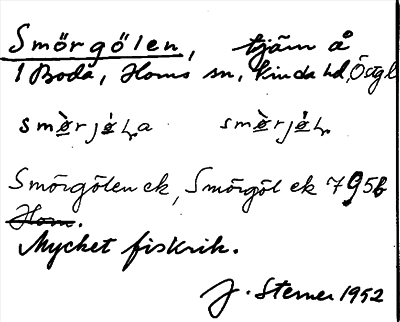 Smörgölen, tjärn å
1 Boda, Horns sn, Kinda hd, Östgl
smø̀rjǿlₐa smø̀rjǿl
Smörgölen ek, Smörgöl ek 7 95b
Horn.
Mycket fiskrik.
J. Sterner 1952